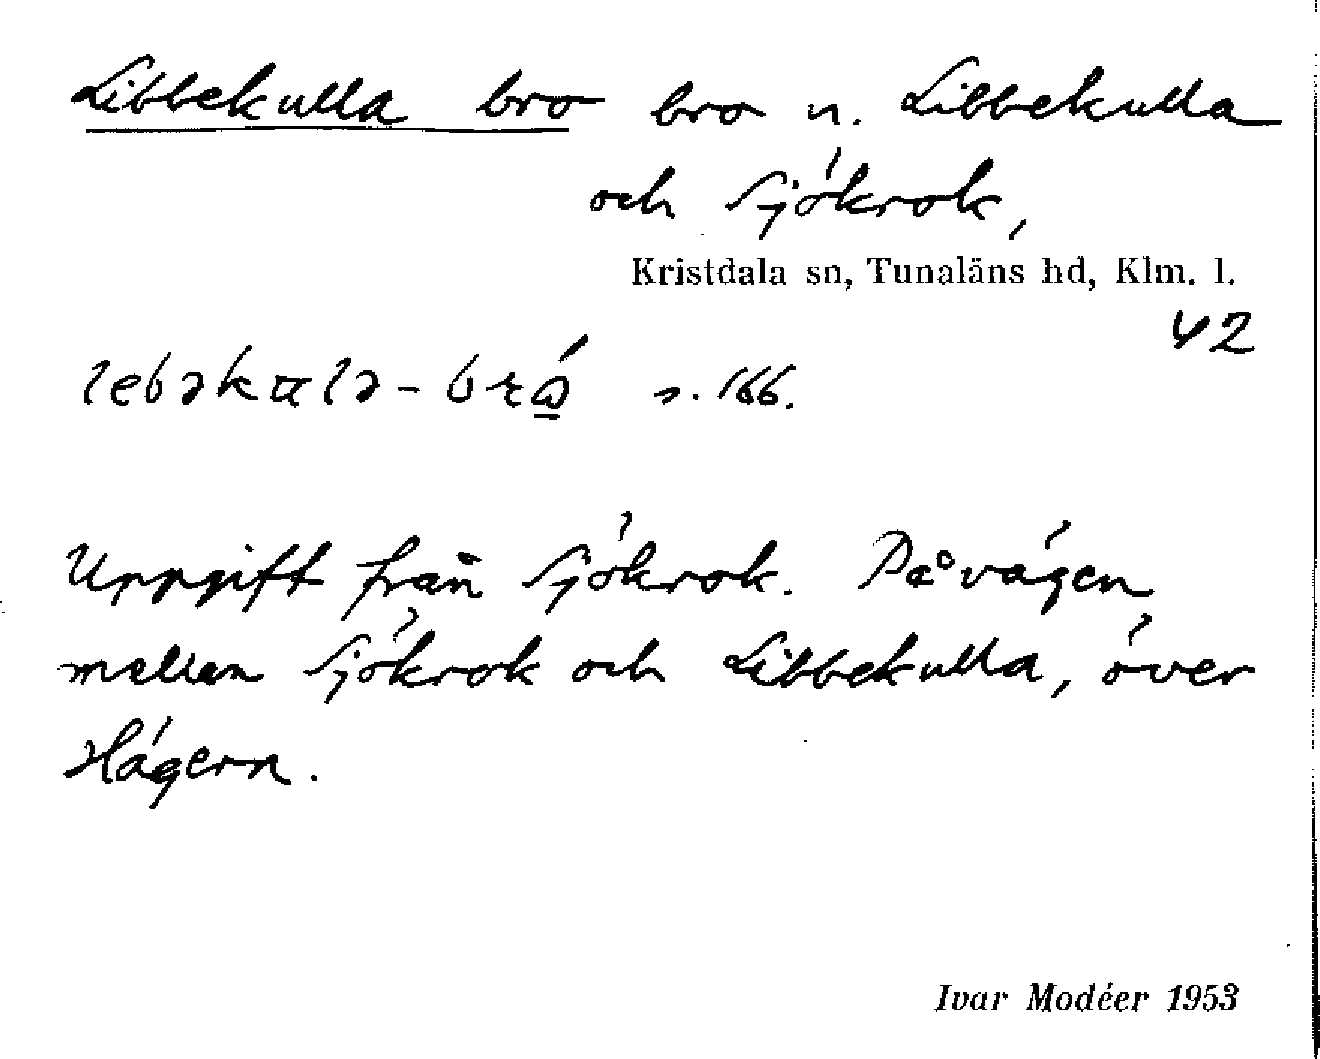 Libbekulla bro bro u. Libbekulla
och Sjökrok,
Kristdala sn, Tunaläns hd, Klm. l.
42
s. 166.
Uppgift från Sjökrok. På vägen
mellan Sjökrok och Libbekulla, över
Hägern.
Ivar Modéer 1953